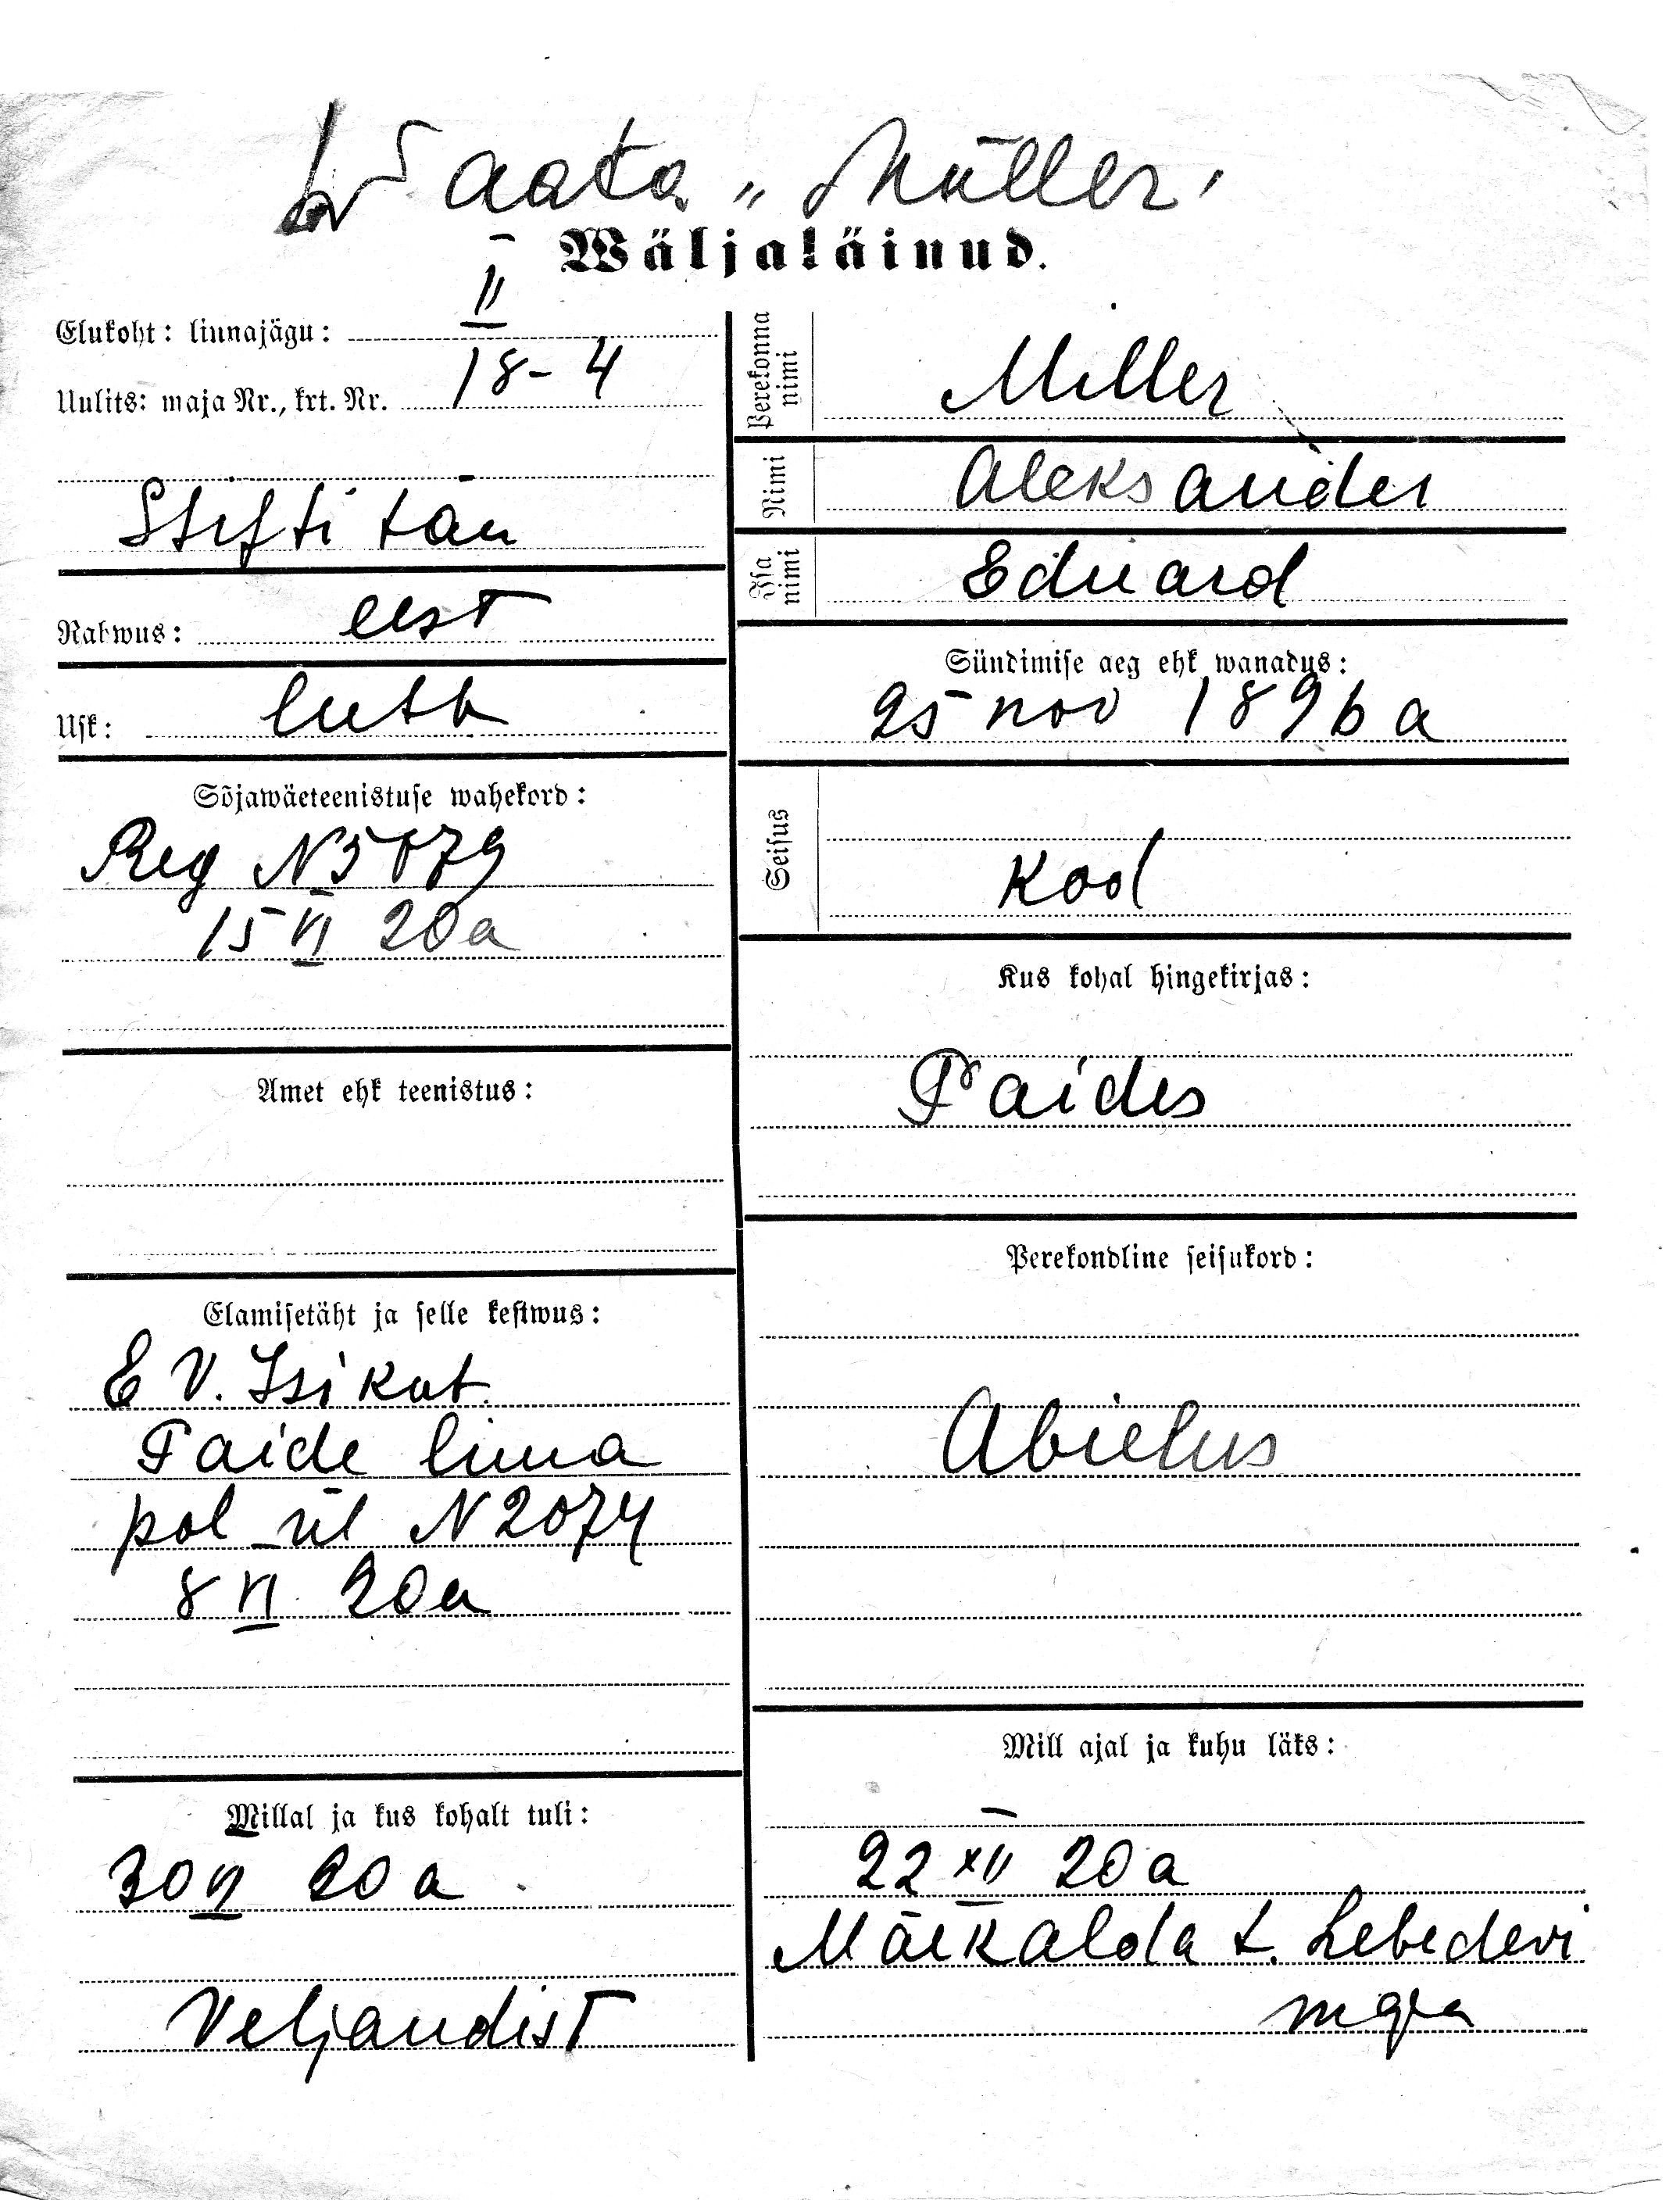 Waata „Müller"
Wäljaläinud.
Elukoht: linnajägu: II
Uulits: maja Nr., krt. Nr. 18-4
Stifti tän
Rahwus: eest
Usk: luth
Sõjawäeteenistuse wahekord:
Reg N 5079
15 VI 20a
Amet ehk teenistus:
Elamisetäht ja selle kestwus:
E V. Isikut.
Paide linna
pol ül N 2074
8 VI 20a
Millal ja kus kohalt tuli:
30 VI 20 a
Veljandist
Perekonna nimi Miller
Nimi Aleksander
Isa nimi Eduard
Sündimise aeg ehk wanadus:
25 nov 1896 a
Seisus
Kod
Kus kohal hingekirjas:
Paides
Perekondline seisukord:
Abielus
Mill ajal ja kuhu läks:
22 XII 20 a
Mäekalda t. Lebedevi